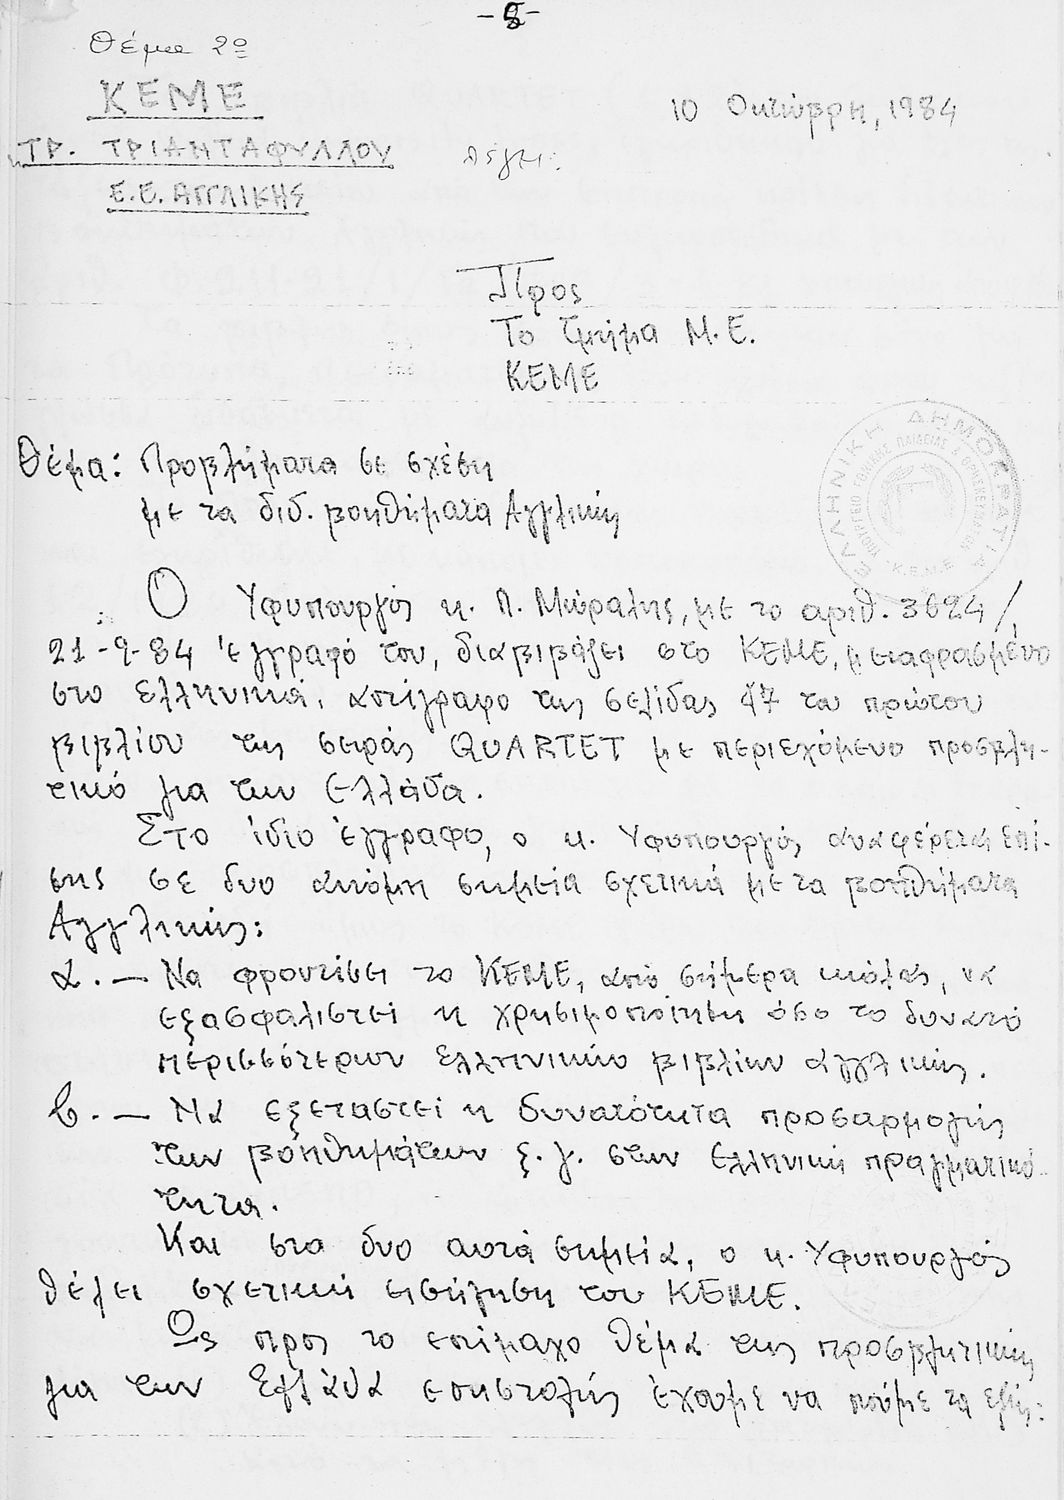 -8-
Θέμα 2º
ΚΕΜΕ
10 Οκτώβρη, 1984
ΤΡ. ΤΡΙΑΝΤΑΦΥΛΛΟΥ
Ε.Ε. ΑΓΓΛΙΚΗΣ
Προς
Το Τμήμα Μ.Ε.
ΚΕΜΕ
ΕΛΛΗΝΙΚΗ ΔΗΜΟΚΡΑΤΙΑ
Κ.Ε.Μ.Ε
Θέμα: Προβλήματα σε σχέση
με τα διδ. βοηθήματα Αγγλικής
Ο Υφυπουργός κ. Π. Μώραλης, με το αριθ. 3624/
21-9-84 έγγραφό του, διαβιβάζει στο ΚΕΜΕ, μεταφρασμένο
στο ελληνικά, αντίγραφο της σελίδας 47 του πρώτου
βιβλίου της σειράς QUARTET με περιεχόμενο προσβλη-
τικό για την Ελλάδα.
Στο ίδιο έγγραφο, ο κ. Υφυπουργός αναφέρεται επί-
σης σε δυο ακόμη σημεία σχετικά με τα βοηθήματα
Αγγλικής:
α. — Να φροντίσει το ΚΕΜΕ, από σήμερα κιόλας, να
εξασφαλιστεί η χρησιμοποίηση όσο το δυνατό
περισσότερων ελληνικών βιβλίων αγγλικής.
β. — Να εξεταστεί η δυνατότητα προσαρμογής
των βοηθημάτων ξ.γ. στην ελληνική πραγματικό-
τητα.
Και στα δυο αυτά σημεία, ο κ. Υφυπουργός
θέλει σχετική εισήγηση του ΚΕΜΕ.
Ως προς το επίμαχο θέμα της προσβλητικής
για την Ελλάδα επιστολής έχουμε να πούμε τα εξής: